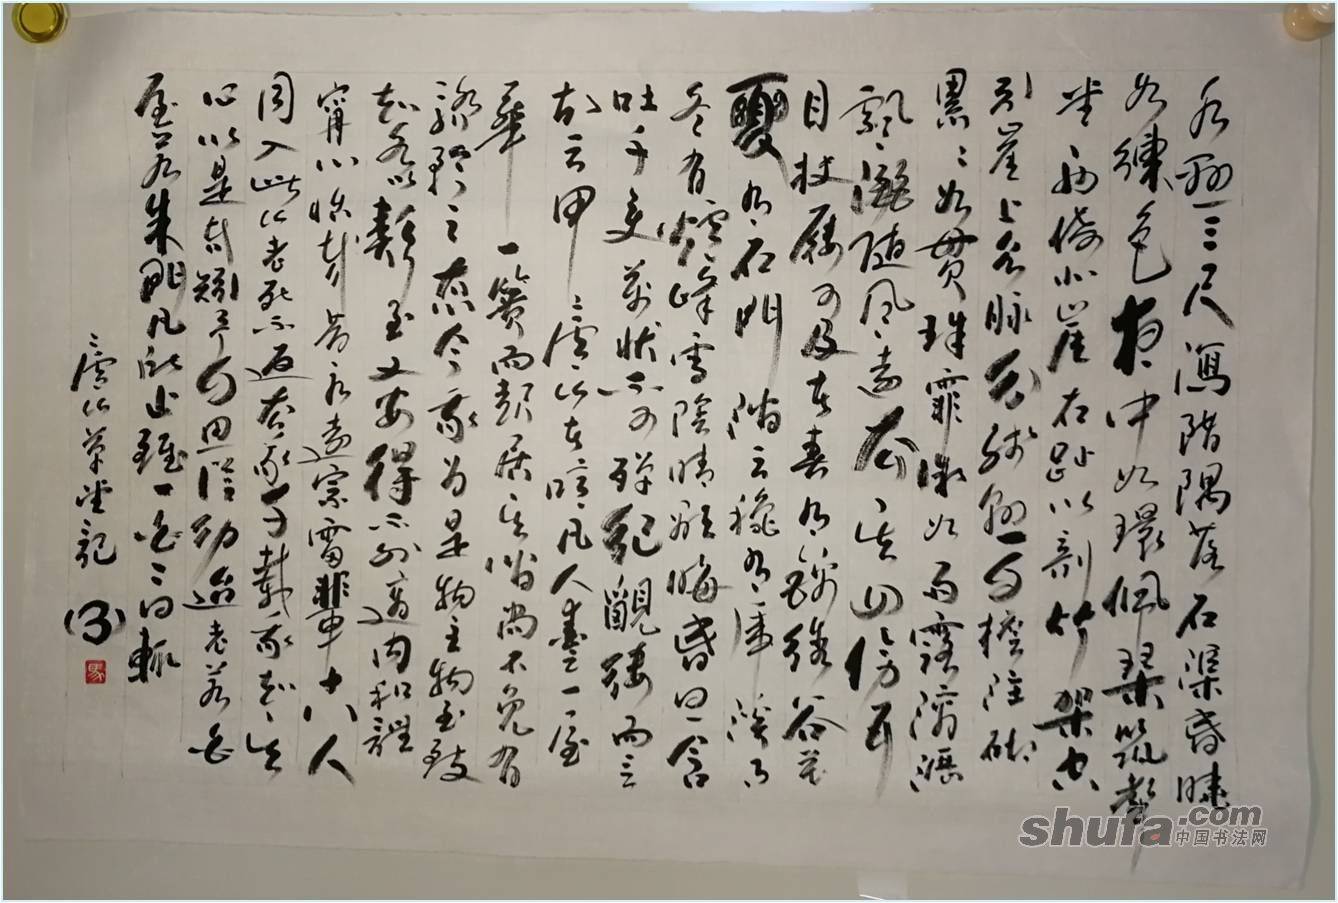 水懸三尺瀉階隅落石渠昏曉
如練色夜中如環佩琴筑聲
堂西倚北崖右趾以剖竹架空
引崖上泉脉分線懸自檐注砌
累々如貫珠霏微如雨露滴瀝
飄灑隨風遠去其四傍耳
目杖屨可及者春有錦繡谷花
夏有石門澗云秋有虎溪月
冬有爐峰雪陰晴顯晦昏旦含
吐千变萬狀不可殫紀覼縷而言
故云甲廬山者噫凡人豐一屋
華一簣而起居其間尚不免有
驕矜之态今我为是物主物至致
知各以類至又安得不外適内和體
寧心恬哉昔永遠宗雷輩十八人
同入此山老死不返去我千載我知其
心以是哉矧予自思從幼迨老若白
屋若朱門凡所止雖一日二日輒
廬山草堂記
shufa.com
中国书法网